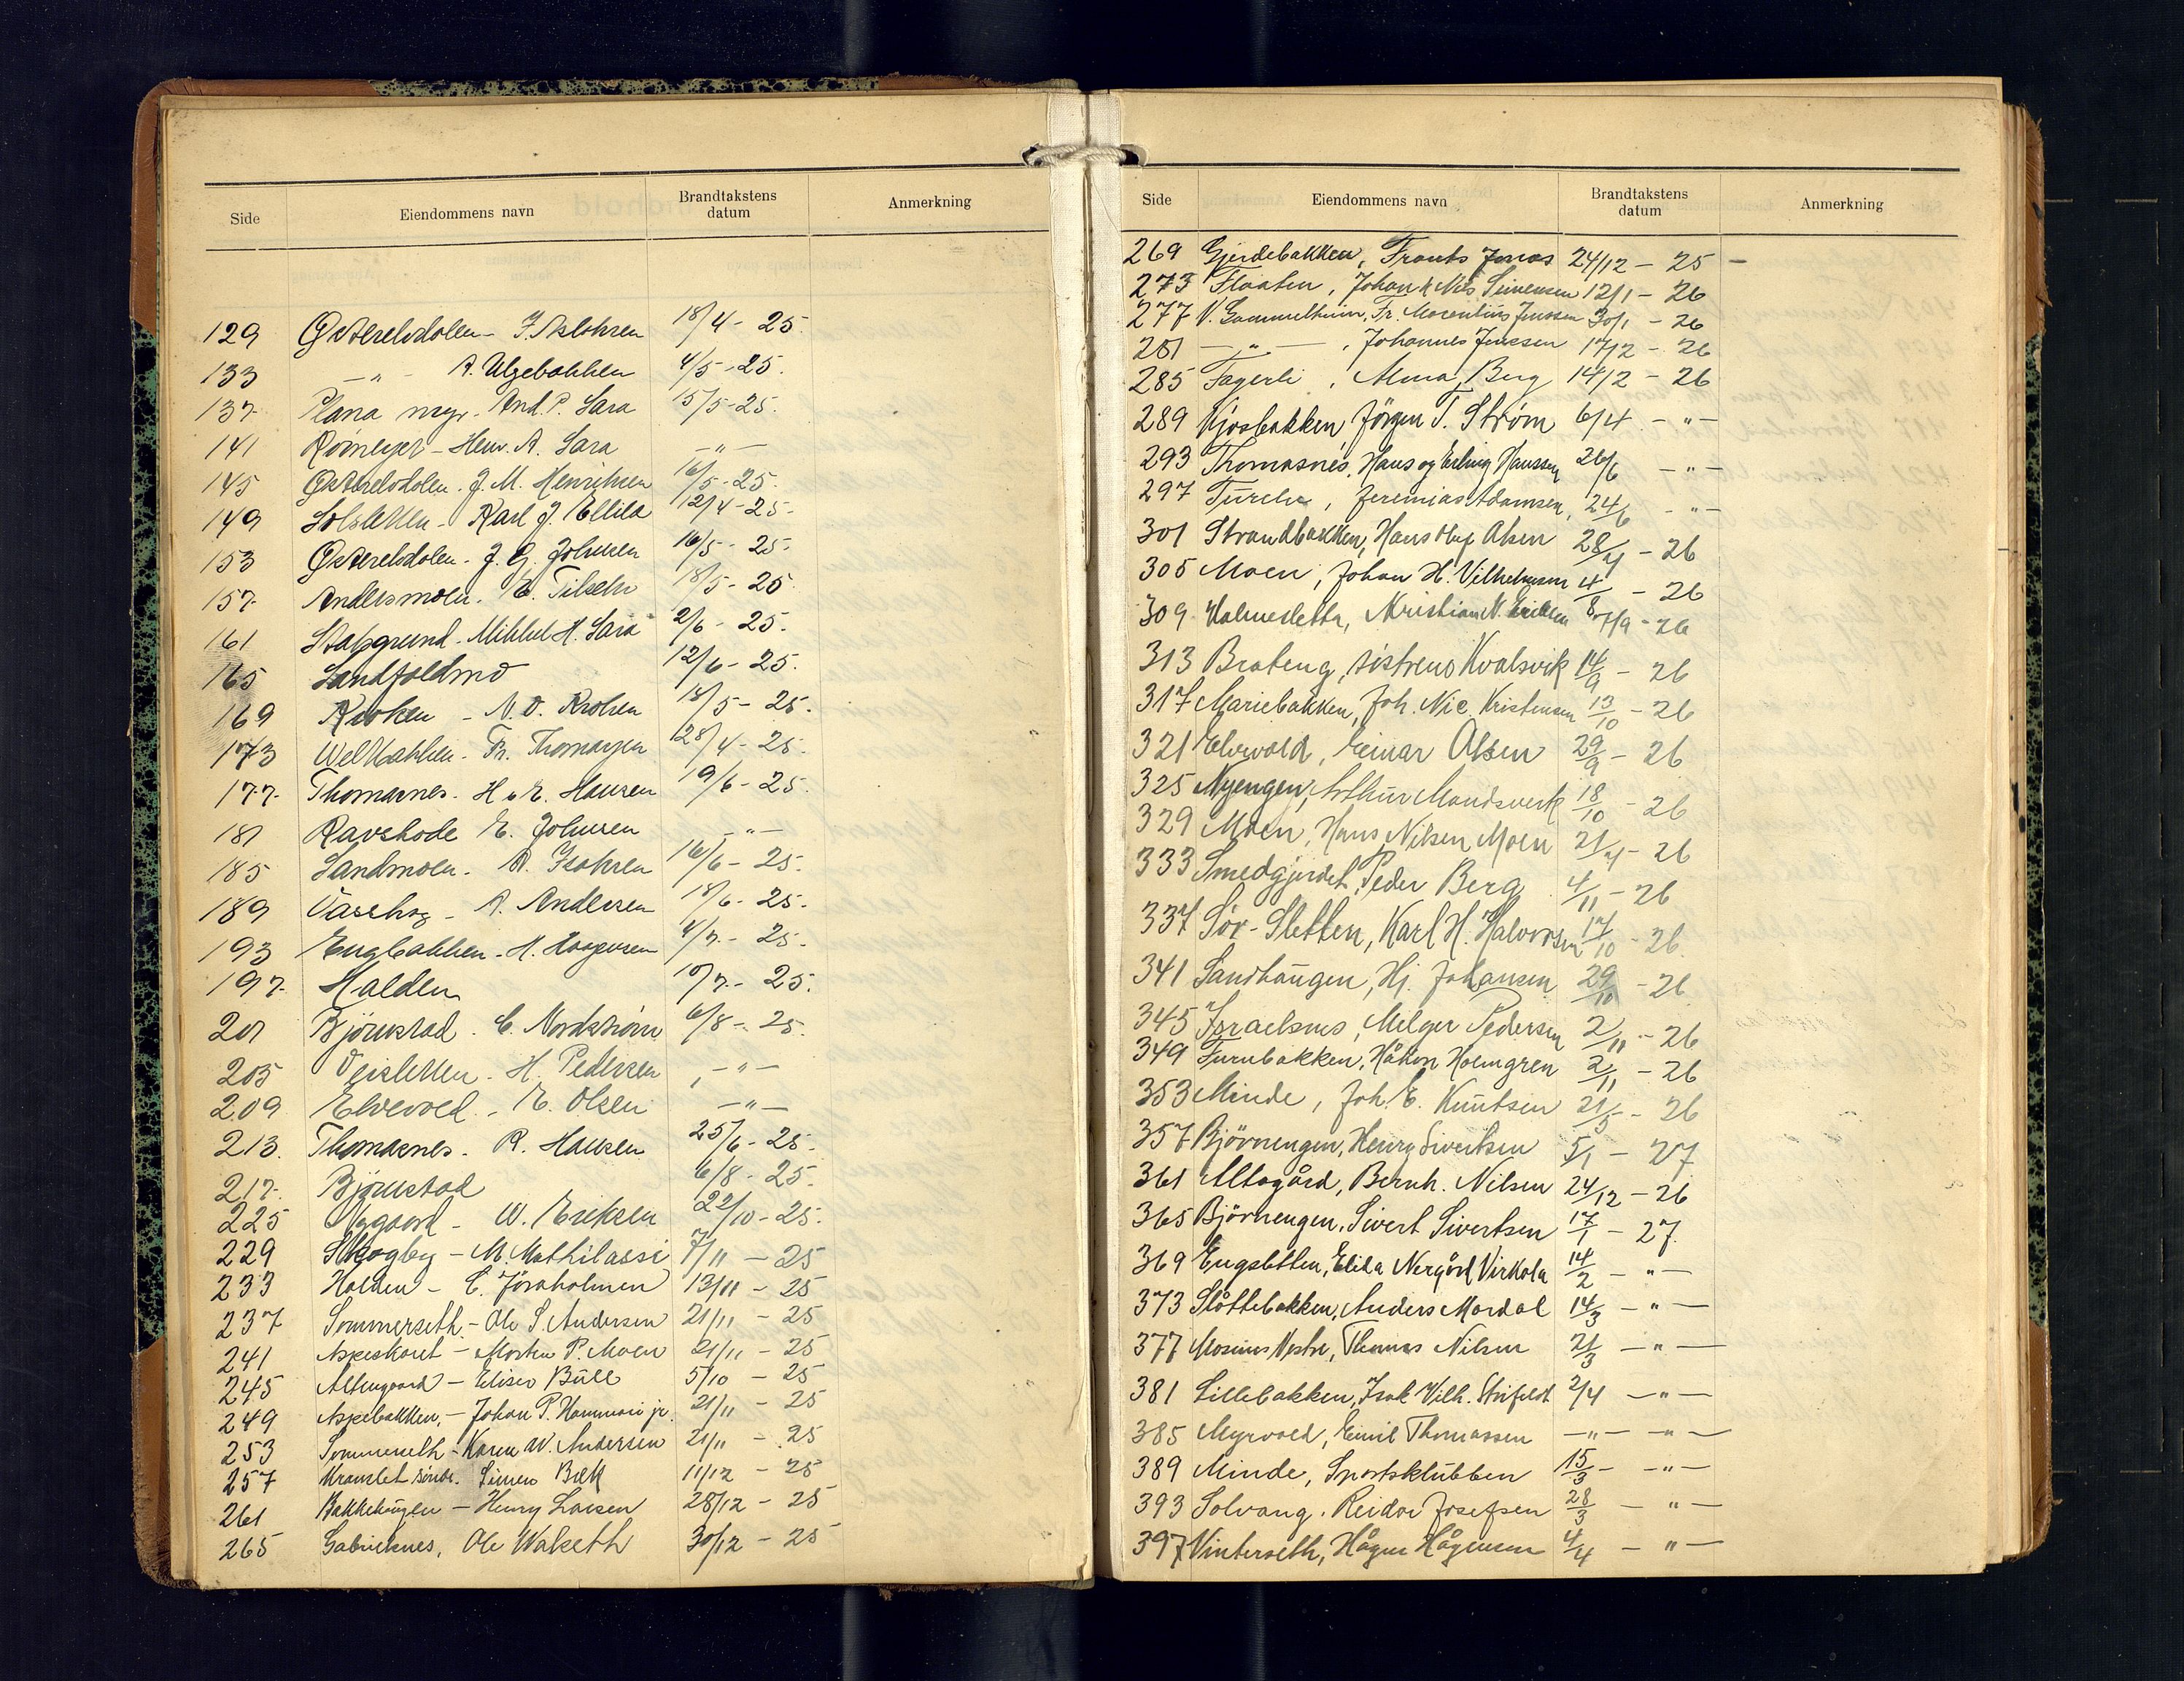 Side Eiendommens navn Brandtakstens datum Anmerkning
129 Østerelvdalen - I. Isaksen 18/4 - 25.
133 — „ — A. Ulgebakken 4/5 - 25.
137 Plana And. P. Sara 15/5 - 25.
141 - Henr. A. Sara — „ —
145 Østerelvdalen. J. M. Henriksen 16/5 - 25.
149 Solsletten - Karl J. Ellila 12/4 - 25.
153 Østerelvdalen. J. G. Johnsen 16/5 - 25.
157 Andersmoen. E. 18/5 - 25.
161 Stabgrund. Mikkel H. Sara 2/6 - 25.
165 Sandfaldmo 12/6 - 25.
169 Kroken - N. O. Kroken 18/5 - 25.
173 - Thomassen 28/4 - 25.
177 Thomasnes. H & E. Hansen 19/6 - 25.
181 Ravskode E. Johnsen — „ —
185 Sandmoen. A. Isaksen 16/6 - 25.
189 - A. Andersen 18/6 - 25.
193 Engbakken - H. 4/7 - 25.
197 Halden 10/7 - 25.
201 Björnstad. C. Nordström 6/8 - 25.
205 Veisletten. H. Pedersen — „ —
209 Elvevold - E. Olsen — „ —
213. Thomasnes. R. Hansen 25/6 - 25.
217. Björnstad 6/8 - 25.
225 Nygaard - W. Eriksen 22/10 - 25.
229 Skogby - M. Mathilassi 7/11 - 25
233 Halden - C. Jöraholmen 13/11 - 25
237 Sommerseth - Ole S. Andersen 21/11 - 25
241 Aspeskaret - Morten P. Moen 21/11 - 25
245 Altengaard - Eliser Büll 5/10 - 25
249 Aspebakken, - Johan P. Hammari jr. 21/11 - 25
253 Sommerseth - Karen W. Andersen 21/11 - 25
257 Kramslet söndr. Simen Bæk 11/12 - 25
261 Bakkehaugen - Henry Larsen 28/12 - 25
265 Gabrielnes, Ole Wakseth 30/12 - 25
Side Eiendommens navn Brandtakstens datum Anmerkning
269 Gjerdebakken, Frants Jonas 24/12 - 25 -
273 Flaaten, Johan & Nils Simensen 12/1 - 26
277 V. Gammelheim, Fr. Mosentius Jenssen 30/1 - 26
281 — „ — , Johannes Jenssen 17/12 - 26
285 Fagerli, Alma Berg 14/2 - 26
289 Kjosbakken, Jörgen T. Ström 6/4 - „ -
293 Thomasnes, Hans og Erling Hanssen 26/6 - „ -
297 Furelv, Jeremias Adamsen, 24/6 - „ -
301 Strandbakken, Hans Oluf Olsen 28/4 - 26
305 Moen, Johan H. Vilhelmsen 4/ - 26
309 Halmesletta, Kristian N. Eriksen 8/9 - 26
313 Brateng, söstrene Kvalsvik 14/9 - 26
317 Mariebakken, Joh. Nic. Kristensen 13/10 - 26
321 Elvevold, Einar Olsen 29/9 - 26
325 Nyengen, Arthur Mandsverk 18/10 - 26
329 Moen, Hans Nilsen Moen 21/4 - 26
333 Smedgjerdet, Peder Berg 4/11 - 26
337 Sör-Sletten, Karl H. Halvorsen 17/10 - 26.
341 Sandhaugen, Hj. Johansen 29/10 - 26.
345 Israelsnes, Melger Pedersen 2/11 - 26
349 Furubakken, Håkon Holmgren 2/11 - 26
353 Minde, Joh. E. Knutsen 21/5 - 26
357 Björnengen, Henry Sivertsen 5/1 - 27
361 Altagård, Bernh. Nilsen 24/12 - 26
365 Björnengen, Sivert Sivertsen 17/1 - 27.
369 Engsletten, Elida Nergård Virkola 14/2 - „ -
373 Slåttebakken, Anders Mardal 14/3 - „ -
377 Mosines Vestre, Thomas Nilsen 21/3 - „ -
381 Lillebakken, Isak Vilh. Strifeldt 2/4 - „ -
385 Myrvold, Emil Thomassen - „ - - „ -
389 Minde, Sportsklubben 15/3 - - „ -
393 Solvang. Reidar Josefsen 28/3 - „ -
397 Vinterseth, Hågen Hågensen 4/4 - „ -